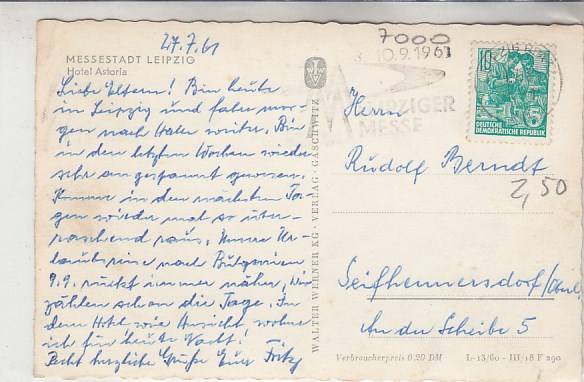 27.7.61
MESSESTADT LEIPZIG
Hotel Astoria
Liebe Eltern! Bin heute
in Leipzig und fahre mor-
gen nach Halle weiter. Bin
in den letzten Wochen wieder
sehr angespannt gewesen.
Komme in den nächsten Ta-
gen wieder mal so über-
raschend raus. Unsere Ur-
laubsreise nach Bulgarien
9.9. rückt immer näher, wir
zählen schon die Tage. In
dem Hotel wie Ansicht wohne
ich für heute Nacht!
Recht herzliche Grüße Euer Fritz
WALTER WERNER KG · VERLAG · GASCHWITZ
7000
10.9.1961
LEIPZIGER
MESSE
10
5
DEUTSCHE
DEMOKRATISCHE REPUBLIK
Herrn
Rudolf Berndt
2,50
Seifhennersdorf/Oberl.
An der Scheibe 5
Verbraucherpreis 0.20 DM
L-13/60 - III/18 F 290